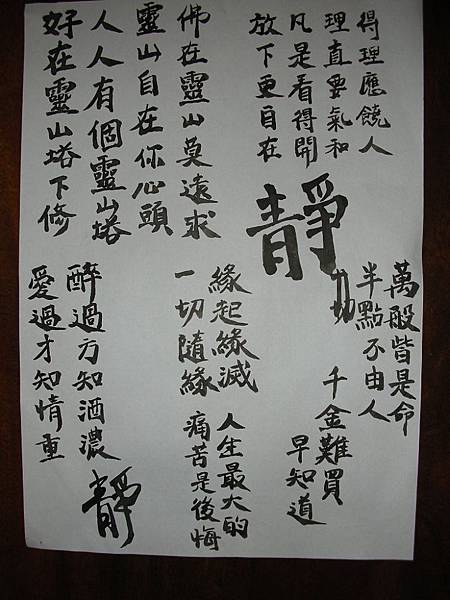 得理應饒人
理直要氣和
凡是看得開
放下更自在
佛在靈山莫遠求
靈山自在你心頭
人人有個靈山塔
好在靈山塔下修
靜
萬般皆是命
半點不由人
千金難買
早知道
緣起緣滅
一切隨緣
人生最大的
痛苦是後悔
醉過方知酒濃
愛過才知情重
靜